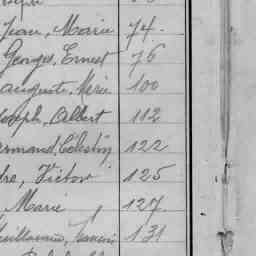 Jean, Marie 74.
Georges, Ernest 76
Auguste, Mérée 100
Joseph, Albert 112
Armand, Célestin 122
dre, Victor 125
Marie 127
Guillaume, Francis 131